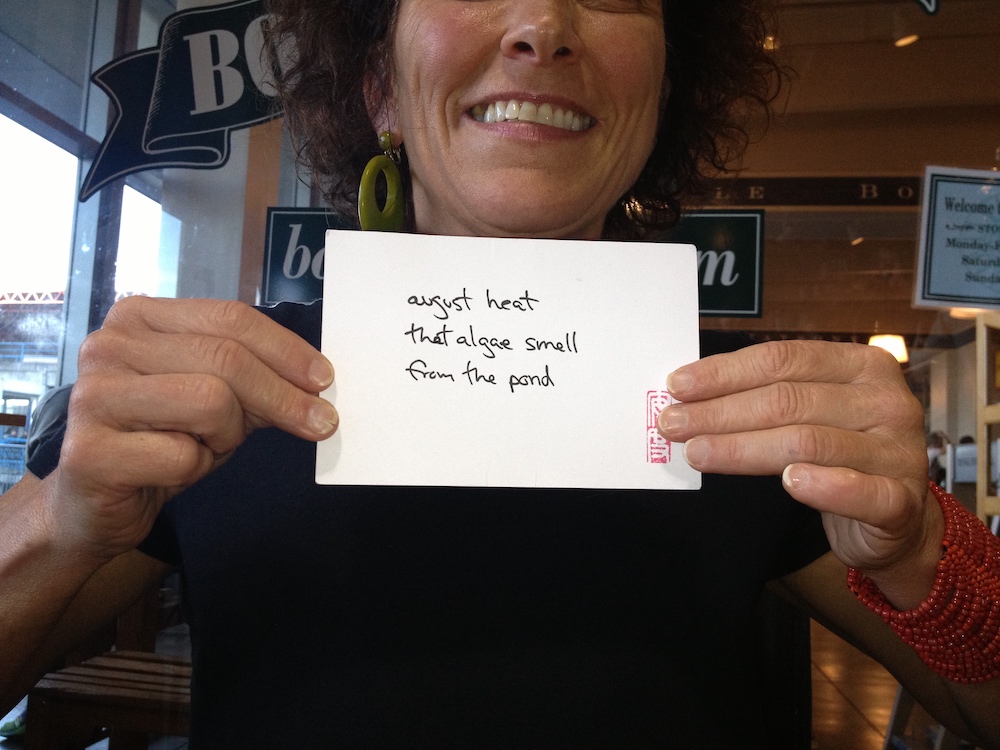 BO
LE BO
Welcome
STO
Monday-F
Saturd
Sunda
bo
m
august heat
that algae smell
from the pond